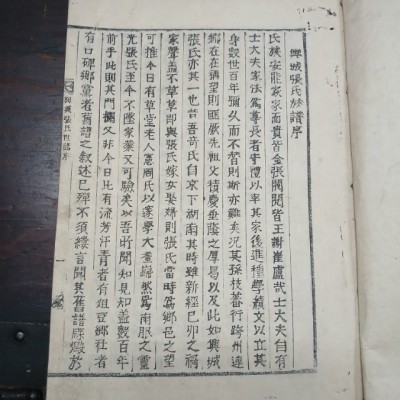 興城張氏族譜序
氏族安能家家而貴皆金張閥閱皆王謝崔盧哉士大夫自有
士大夫家法爲尊長者守禮以率其家後進種學績文以立其
身觀世百年彌久而不替則斯亦難矣況其孫枝蕃衍跨州連
鄉在在望所則匪厥先祖父積慶垂蔭之厚曷以及此如興城
張氏亦其一也昔吾奇氏自京下湖南其時雖新經己卯之禍
家聲盖不草草即與張氏嫁女娶婦則張氏當時爲鄉邑之望
可推今日有草堂老人憲周氏以蓬學大耋巋然爲南服之靈
光張氏至今不墜家業又可驗矣以吾所聞知見知盖數百年
前乎此則其門闌又非今日比有流芳汗青者有俎豆鄉社者
有口碑鄉黨者舊譜之叙述已殫不須縷言聞其舊譜牒燬於
興城張氏世譜序
一